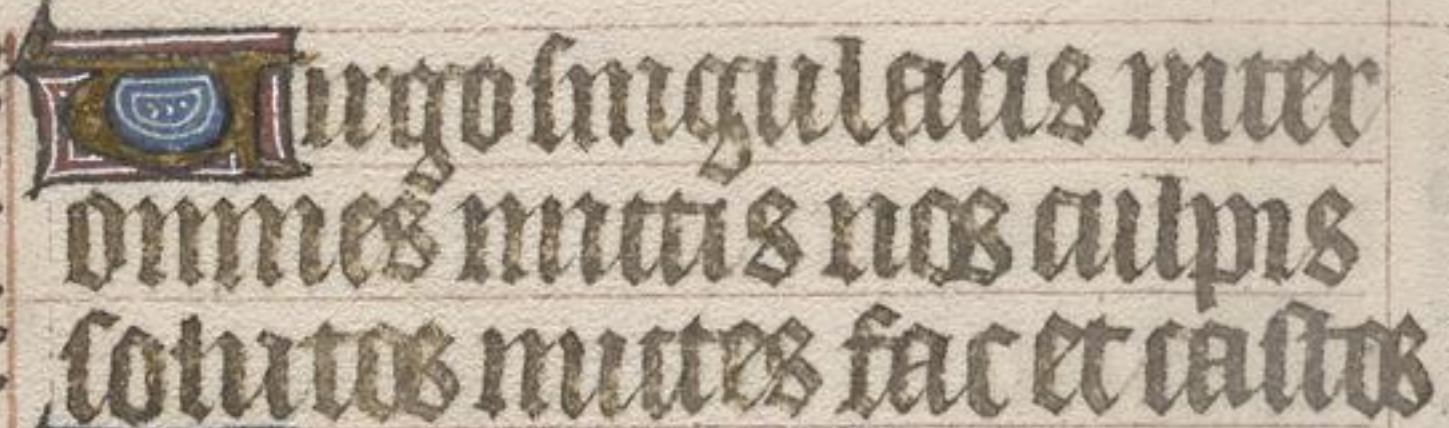 Virgo singularis inter
omnes mittis nos culpis
solutos mittes fac et castos